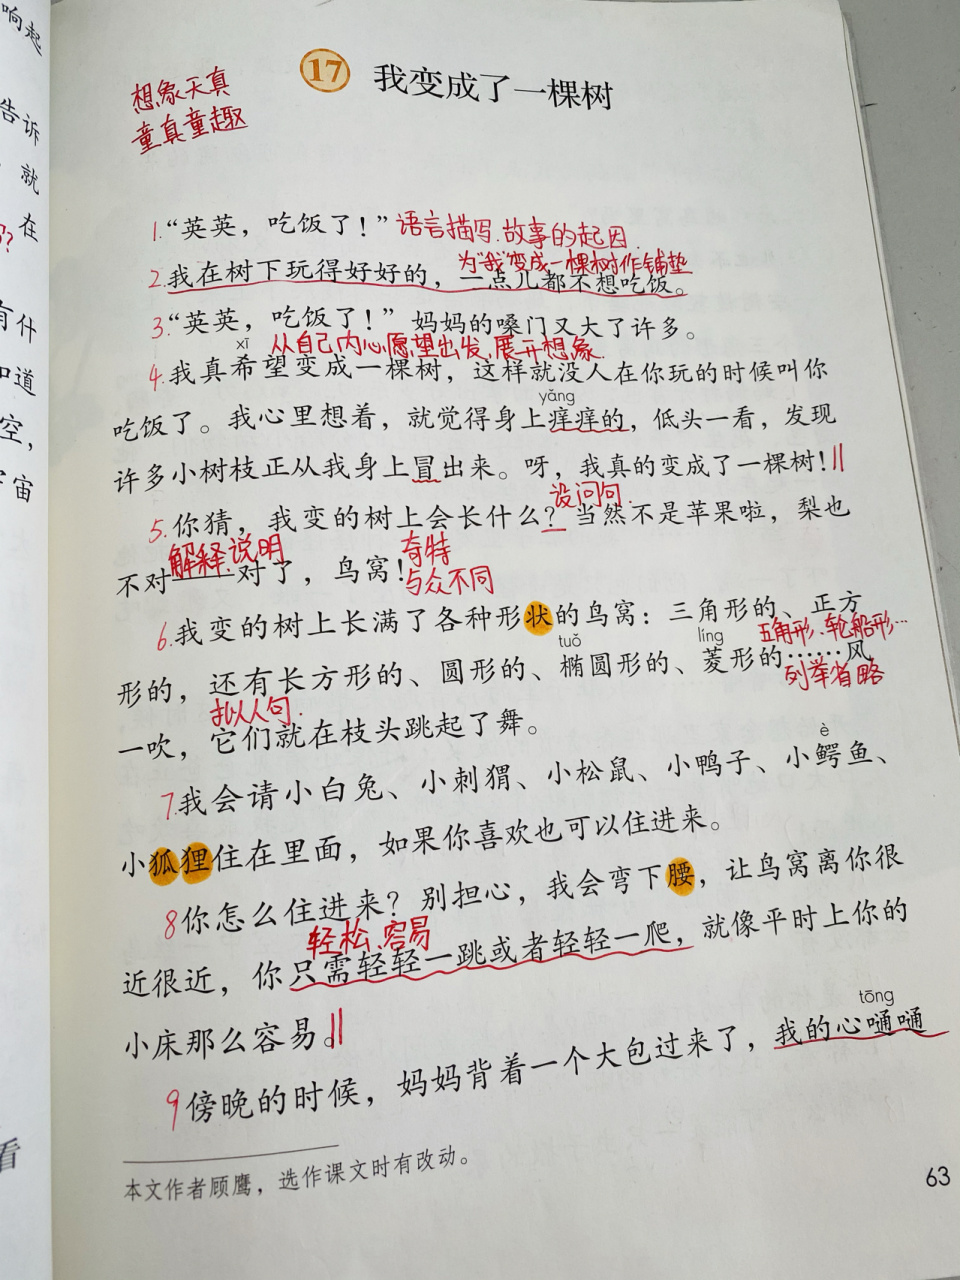 响起
告诉
就
在
？
有什
知道
空，
宇宙
看
17 我变成了一棵树
想象天真
童真童趣
1."英英，吃饭了！"语言描写.故事的起因.
为"我"变成一棵树作铺垫
2.我在树下玩得好好的，一点儿都不想吃饭。
3."英英，吃饭了！"妈妈的嗓门又大了许多。
xī 从自己内心愿望出发,展开想象.
4.我真希望变成一棵树，这样就没人在你玩的时候叫你
yǎng
吃饭了。我心里想着，就觉得身上痒痒的，低头一看，发现
许多小树枝正从我身上冒出来。呀，我真的变成了一棵树！
设问句.
5.你猜，我变的树上会长什么？当然不是苹果啦，梨也
解释.说明 奇特
不对——对了，鸟窝！与众不同
6.我变的树上长满了各种形状的鸟窝：三角形的、正方
tuǒ líng 五角形、轮船形…
形的，还有长方形的、圆形的、椭圆形的、菱形的……风
拟人句. 列举省略
一吹，它们就在枝头跳起了舞。
è
7.我会请小白兔、小刺猬、小松鼠、小鸭子、小鳄鱼、
小狐狸住在里面，如果你喜欢也可以住进来。
8你怎么住进来？别担心，我会弯下腰，让鸟窝离你很
轻松、容易
近很近，你只需轻轻一跳或者轻轻一爬，就像平时上你的
tōng
小床那么容易。
9傍晚的时候，妈妈背着一个大包过来了，我的心嗵嗵
本文作者顾鹰，选作课文时有改动。
63